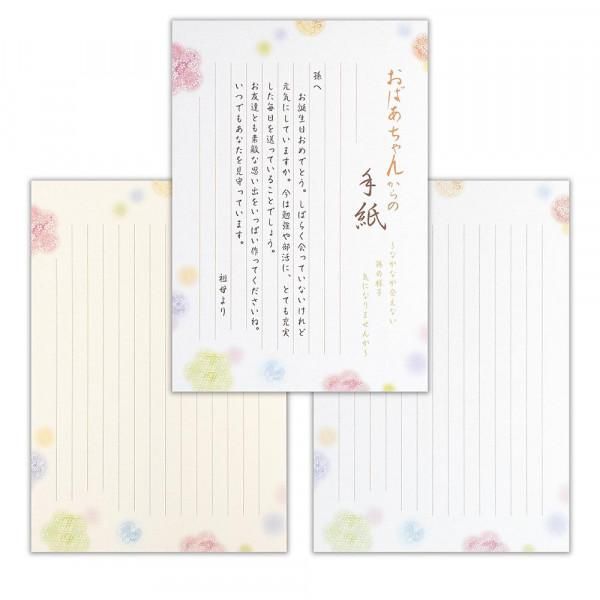 おばあちゃんからの
手紙
〜なかなか会えない
孫の様子
気になりませんか〜
孫へ
お誕生日おめでとう。しばらく会っていないけれど
元気にしていますか。今は勉強や部活に、とても充実
した毎日を送っていることでしょう。
お友達とも素敵な思い出をいっぱい作ってくださいね。
いつでもあなたを見守っています。
祖母より